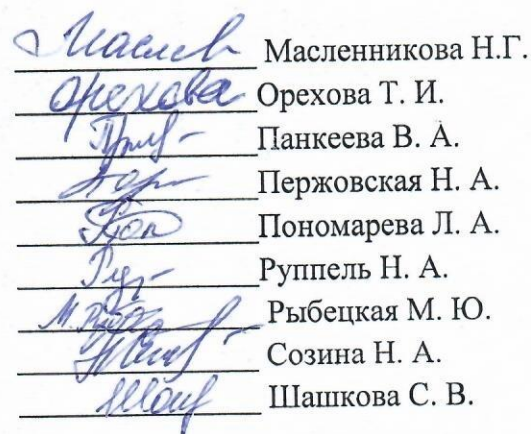 Маслен Масленникова Н.Г.
Орехова Орехова Т. И.
Панкеева В. А.
Пержовская Н. А.
Пономарева Л. А.
Руппель Н. А.
Рыбецкая М. Ю.
Созина Н. А.
Шашкова С. В.